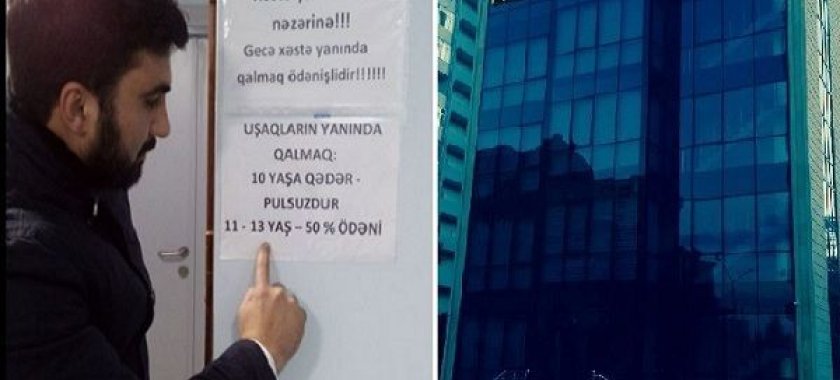 nəzərinə!!!
Gecə xəstə yanında
qalmaq ödənişlidir!!!!!!
UŞAQLARIN YANINDA
QALMAQ:
10 YAŞA QƏDƏR -
PULSUZDUR
11 - 13 YAŞ – 50 % ÖDƏNİ